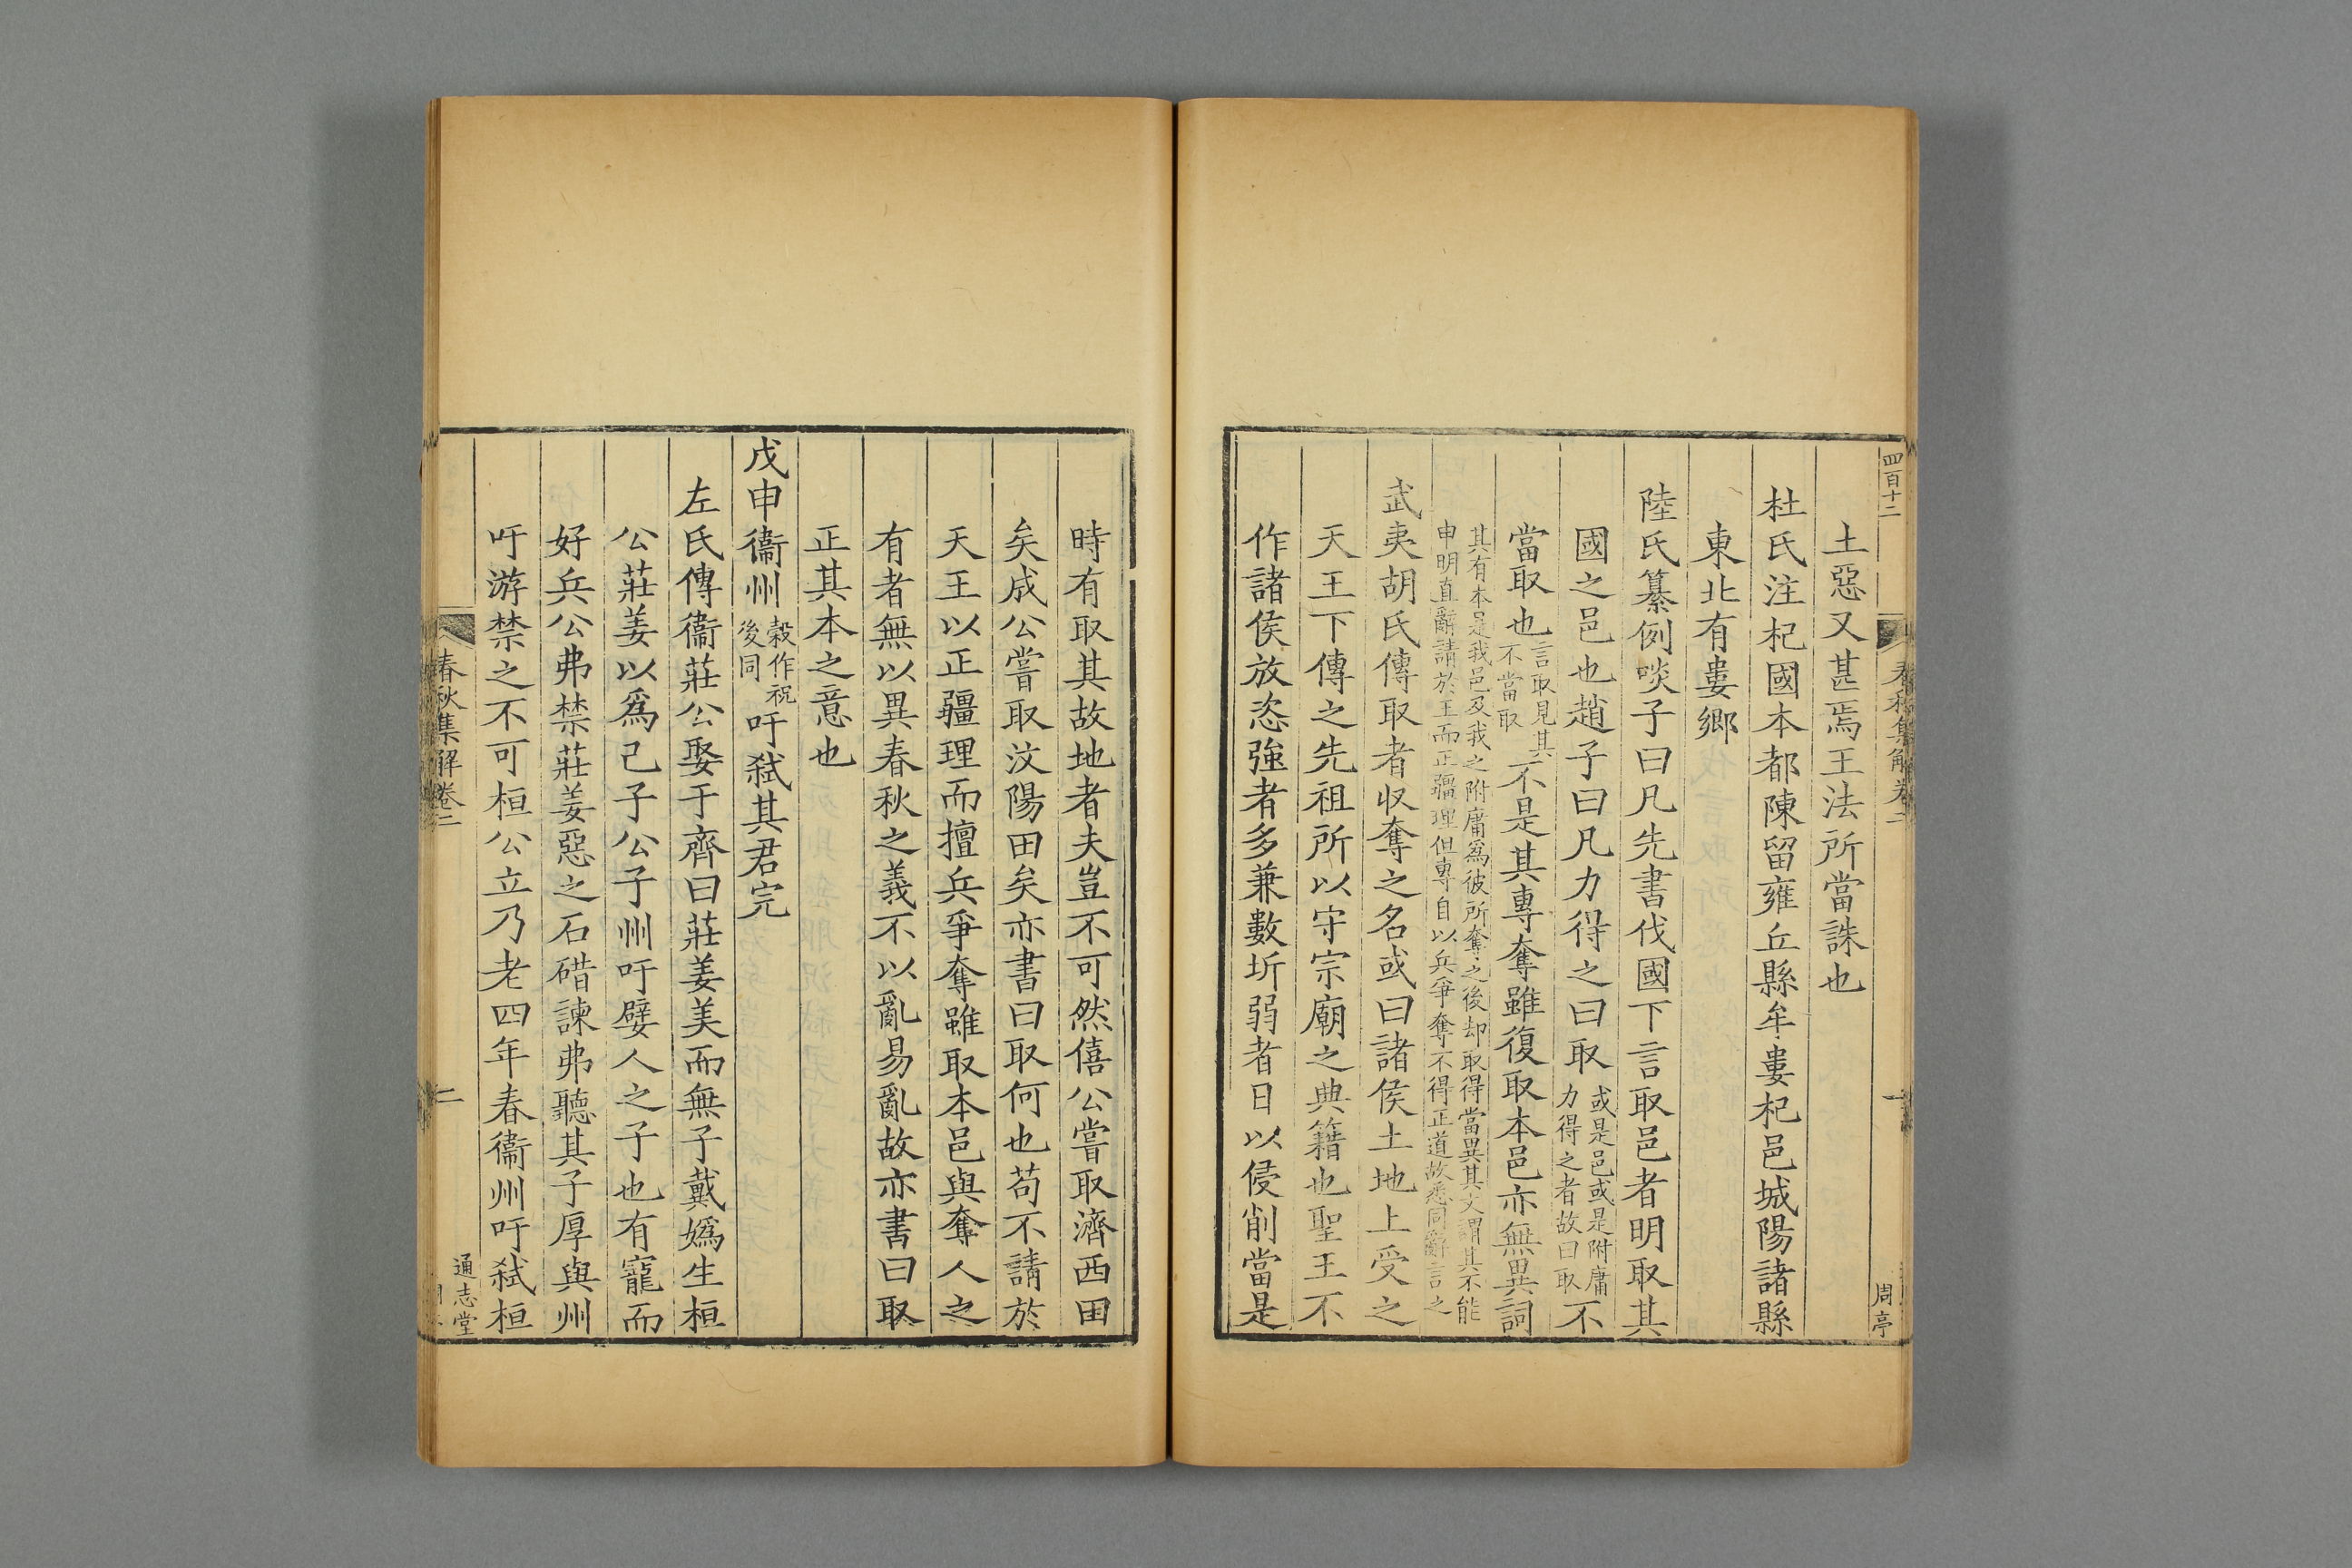 四百十二
春秋集解卷二
一
周亭
土惡又甚焉王法所當誅也
杜氏注杞國本都陳留雍丘縣牟婁杞邑城陽諸縣
東北有婁鄉
陸氏纂例啖子曰凡先書伐國下言取邑者明取其
國之邑也趙子曰凡力得之曰取或是邑或是附庸力得之者故曰取不
當取也言取見其不當取不是其專奪雖復取本邑亦無異詞
其有本是我邑及我之附庸爲彼所奪之後却取得當異其文謂其不能
申明直辭請於王而正疆理但專自以兵爭奪不得正道故悉同辭言之
武夷胡氏傳取者收奪之名或曰諸侯土地上受之
天王下傳之先祖所以守宗廟之典籍也聖王不
作諸侯放恣強者多兼數圻弱者日以侵削當是
時有取其故地者夫豈不可然僖公嘗取濟西田
矣成公嘗取汶陽田矣亦書曰取何也苟不請於
天王以正疆理而擅兵爭奪雖取本邑與奪人之
有者無以異春秋之義不以亂易亂故亦書曰取
正其本之意也
戊申衞州穀作祝後同吁弒其君完
左氏傳衞莊公娶于齊曰莊姜美而無子戴嬀生桓
公莊姜以爲己子公子州吁嬖人之子也有寵而
好兵公弗禁莊姜惡之石碏諫弗聽其子厚與州
吁游禁之不可桓公立乃老四年春衞州吁弒桓
春秋集解卷二
二
通志堂